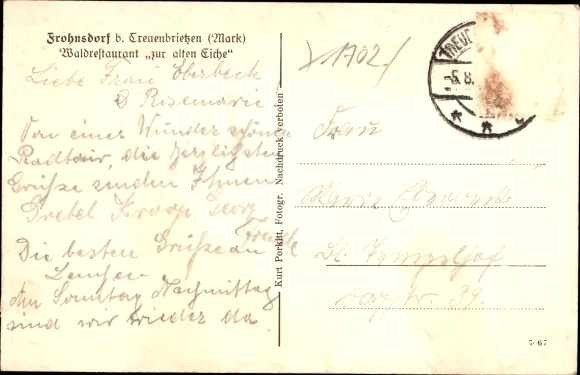 Frohnsdorf b. Treuenbrietzen (Mark)
Waldrestaurant „zur alten Eiche“
1702
Liebe Frau Oberbeck
& Rosemarie!
Von einer Wunder schönen
Radtour, die herzligsten
Grüße senden Ihnen
Gretel Georg
Die besten Grüße an
Am Sonntag Nachmittag
sind wir wieder da.
Kurt Porkitt, Fotogr. Nachdruck verboten
TREUE
-5.8.
Frau
Marie
Bl. Tempelhof
39.